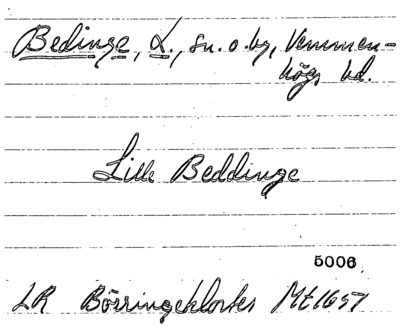 Bedinge, L., sn. o. by, Vemmen-
högs hd.
Lille Beddinge
5006
LR Börringeklosters Mt 1657